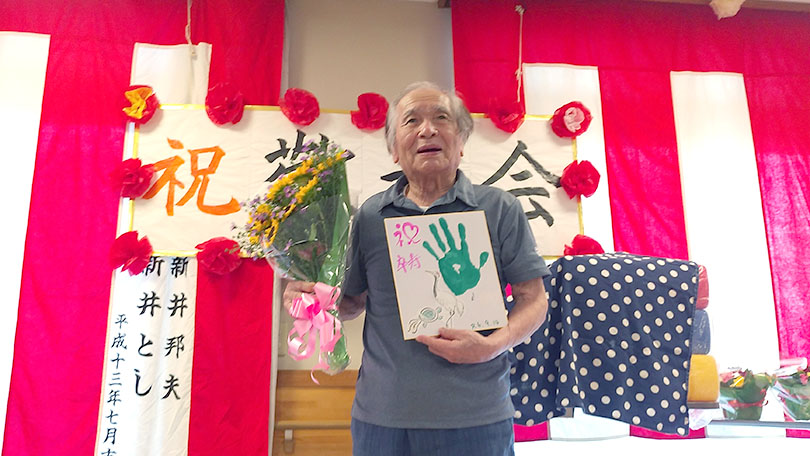 祝 会
祝
寿
新井邦夫
新井とし
平成十三年七月